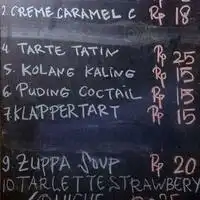 2. CREME CARAMEL C Rp 18
4 TARTE TATIN Rp 25
5. KOLANG KALING Rp 15
6 PUDING COCTAIL Rp 15
7. KLAPPERTART Rp 15
9. ZUPPA SOUP Rp 20
10. TARCETTE STRAWBERY